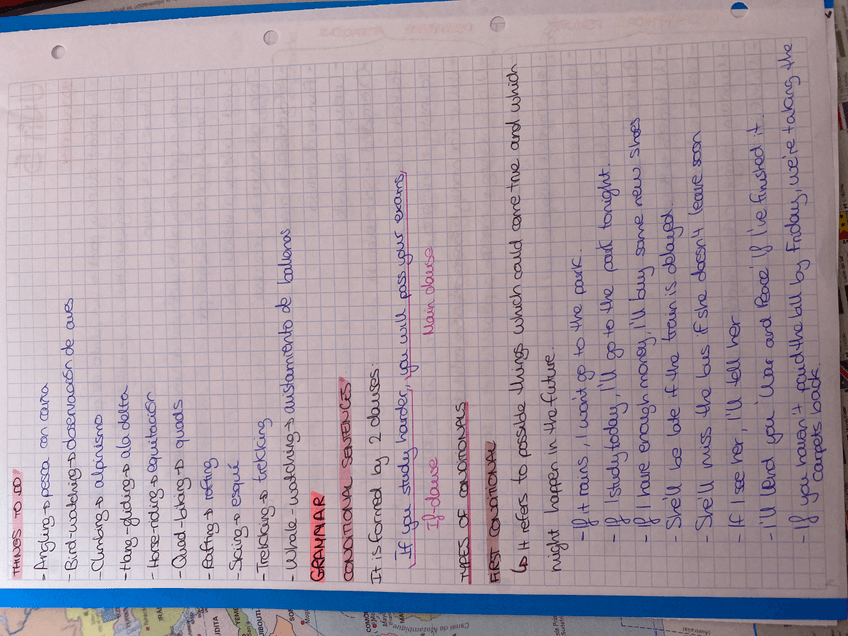 THINGS TO DO
- Angling → pesca con caña
- Bird-watching → observación de aves
- Climbing → alpinismo
- Hang-gliding → ala delta
- Horse-riding → equitación
- Quad-biking → quads
- Rafting → rafting
- Skiing → esquí
- Trekking → trekking
- Whale-watching → avistamiento de ballenas
GRAMMAR
CONDITIONAL SENTENCES
It is formed by 2 clauses:
If you study harder, you will pass your exams,
If-clause Main clause
TYPES OF CONDITIONALS
FIRST CONDITIONAL
↳ It refers to possible things which could come true and which
might happen in the future.
- If it rains, I won't go to the park.
- If I study today, I'll go to the park tonight.
- If I have enough money, I'll buy some new shoes
- She'll be late if the train is delayed.
- She'll miss the bus if she doesn't leave soon
- If I see her, I'll tell her
- I'll lend you 'War and Peace' if I've finished it.
- If you haven't paid the bill by Friday, we're taking the
carpets back.
Canal de Mozambique